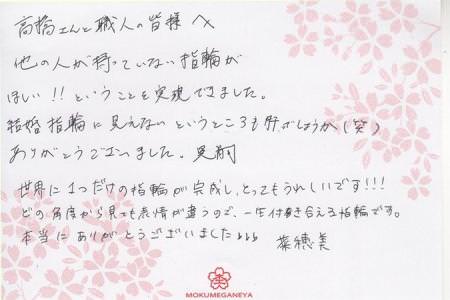 高橋さんと職人の皆様へ
他の人が持っていない指輪が
ほしい!!ということを実現できました。
結婚指輪に見えないというところも肝でしょうか(笑)
ありがとうございました。
世界に1つだけの指輪が完成し、とってもうれしいです!!!
どの角度から見ても表情が違うので、一生付き合える指輪です。
本当にありがとうございました
菜穂美
MOKUMEGANEYA